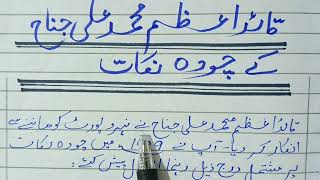 قائداعظم محمد علی جناح
کے چودہ نکات
قائداعظم محمد علی جناح نے نہرو رپورٹ کو ماننے سے
انکار کر دیا۔ آپ نے میں چودہ نکات
پر مشتمل درج ذیل رہنما پیش کیے: